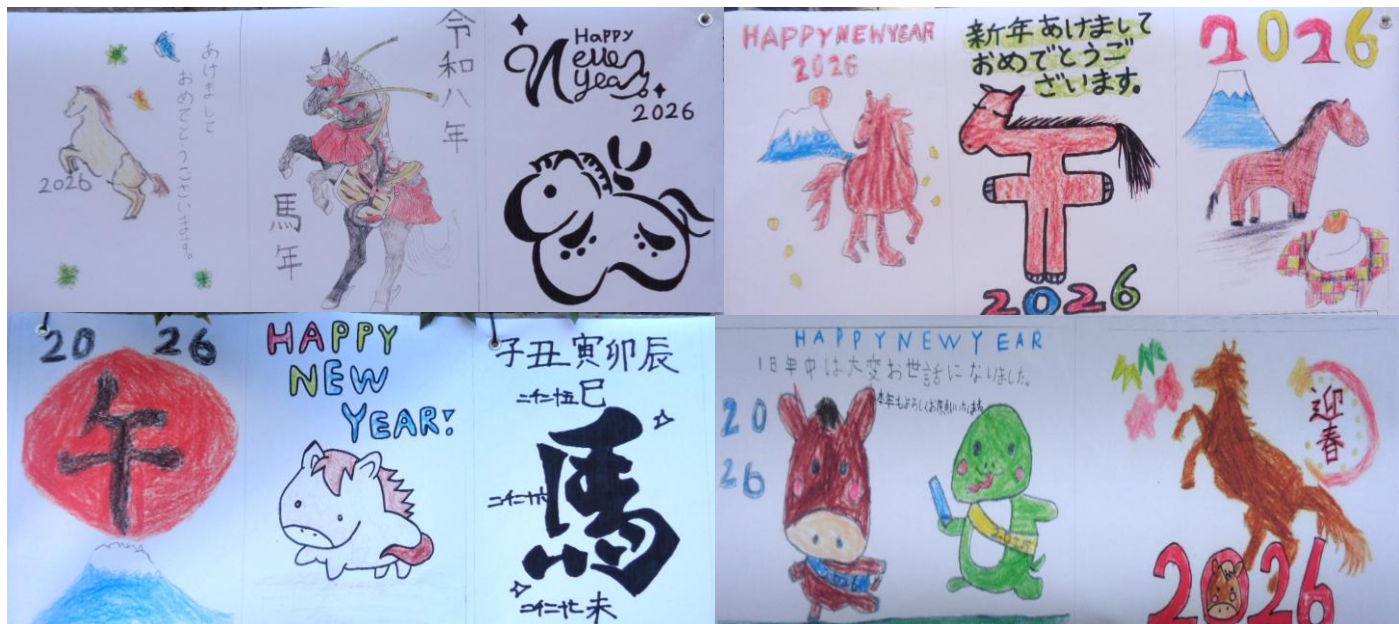 あけまして
おめでとうございます。
2026
令和八年
馬年
HAPPY
New
Year
2026
HAPPYNEWYEAR
2026
新年あけまして
おめでとうご
ざいます。
2026
2026
2026
午
HAPPY
NEW
YEAR!
子丑寅卯辰
二〇二五巳
馬
二〇二六
二〇二七未
HAPPYNEWYEAR
1日年中は大変お世話になりました。
本年もよろしくお願いいたします。
20
26
迎春
2026